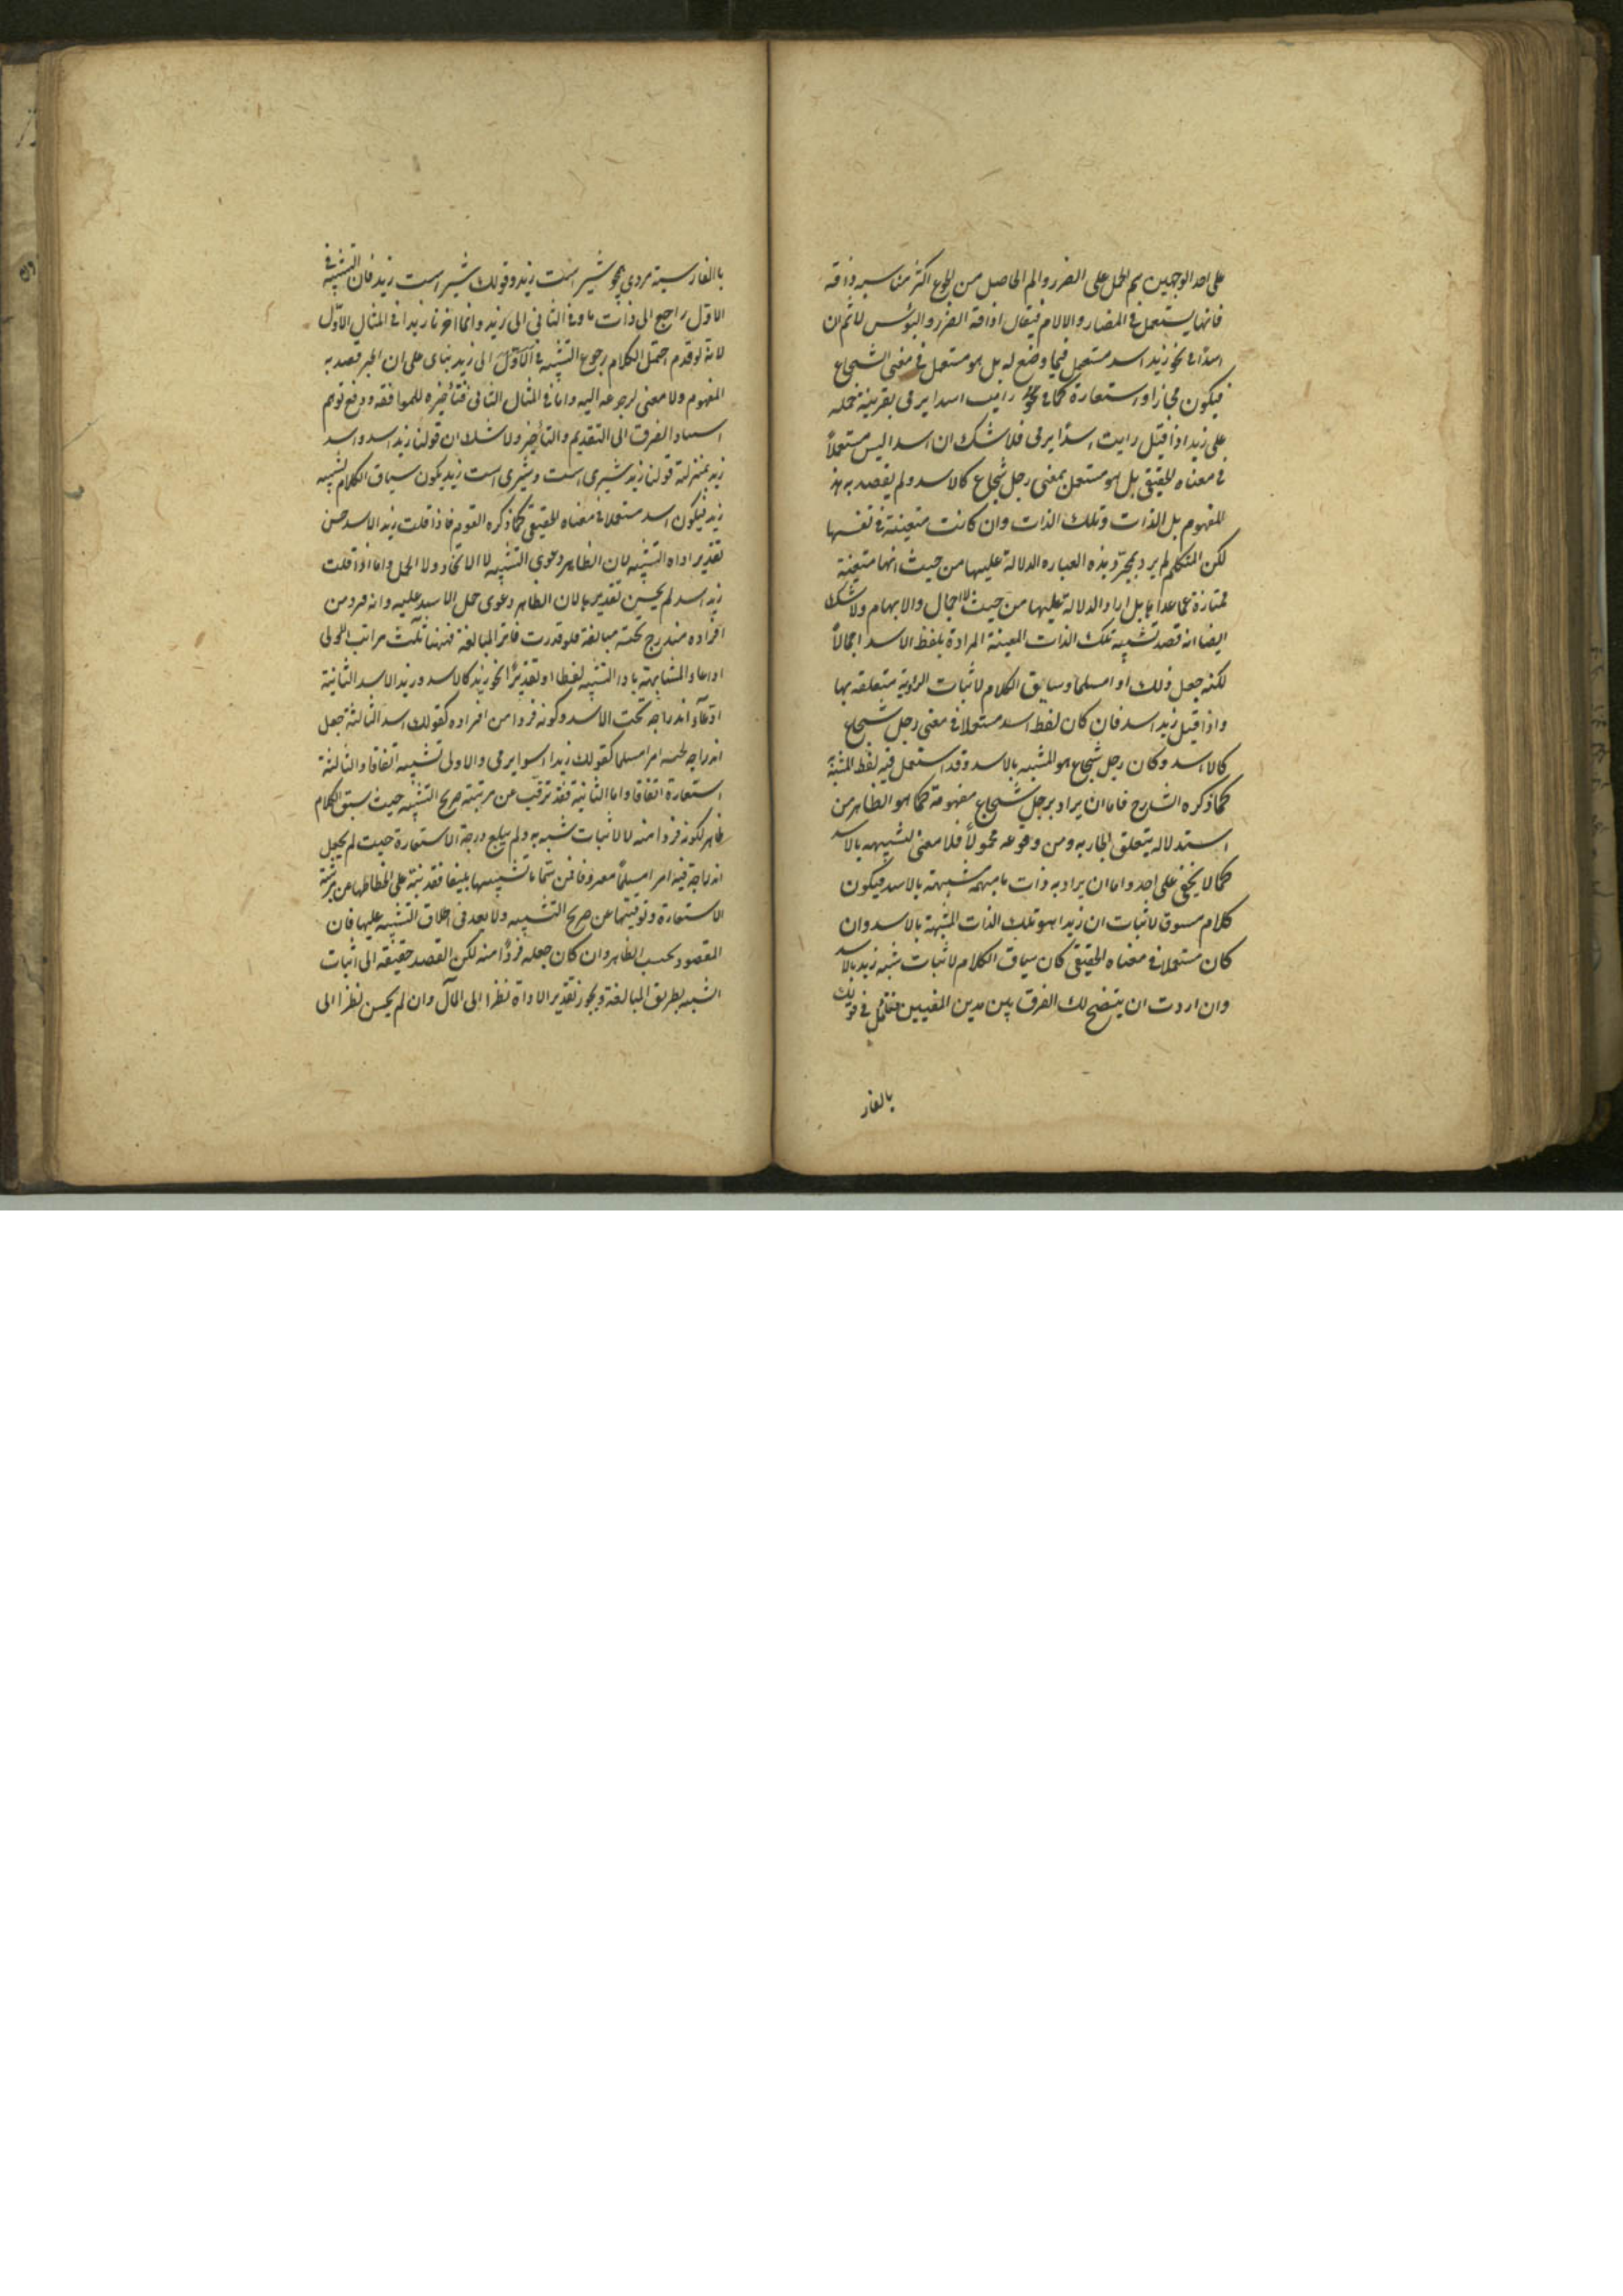 على احد الوجهين ثم الحمل على الضرر والم الحاصل من الجوع اكثر مناسبه واذاقه
فانها يستعمل في المضار والالام فيقال اذاقه الضرر والبؤس
اسدا في نحو زيد اسد مستعمل فيما وضع له بل هو مستعمل في معنى الشجاع
فيكون مجازا واستعارة كما في نحو رايت اسدا يرمى بقرينة حمله
على زيد اذا قيل رايت اسدا يرمى فلا شك ان اسدا ليس مستعملاً
في معناه الحقيقى بل هو مستعمل بمعنى رجل شجاع كالاسد ولم يقصد به هذ
المفهوم بل الذات وتلك الذات وان كانت متعينة في نفسها
لكن المتكلم لم يرد بمجرد هذه العباره الدلالة عليها من حيث انها متعينة
ممتازة عما عداها بل اراد الدلالة عليها من حيث الاجمال والابهام ولا شك
ايضا انه قصد تشبيه تلك الذات المعينة المرادة بلفظ الاسد اجمالاً
لكنه جعل ذلك امرا مسلما وساق الكلام لاثبات الرؤية متعلقه بها
واذا قيل زيد اسد فان كان لفظ اسد مستعملا في معنى رجل شجاع
كالاسد وكان رجل شجاع هو المشبه بالاسد وقد استعمل فيه لفظ المشبه
كما ذكره الشارح فاما ان يراد برجل شجاع مفهومه كما هو الظاهر من
استدلاله بتعلق الجار به ومن وقوعه محمولاً فلا معنى لتشبيهه بالاسد
كما لا يخفى على احد واما ان يراد به ذات ما مبهمه مشبهة بالاسد فيكون
كلام مسوق لاثبات ان زيدا هو تلك الذات المشبهة بالاسد وان
كان مستعملا في معناه الحقيقى كان سياق الكلام لاثبات شبه زيد بالاسد
وان اردت ان يتضح لك الفرق بين هذين المعنيين فتامل في قولك
بالفار
بالفارسية مردى همچو شير است زيد وقولك شير است زيد فان التشبيه في
الاول راجع الى ذات ما وفي الثاني الى زيد وانما اخرنا زيدا في المثال الاول
لانه لو قدم احتمل الكلام رجوع التشبيه في الاول الى زيد بناى على ان الخبر قصد به
المفهوم ولا معنى لرجوعه اليه واما في المثال الثاني فتأخيره للموافقه ودفع توهم
اسناد الفرق الى التقديم والتأخير ولا شك ان قولنا زيد اسد واسد
زيد بمنزلة قولنا زيد شيرى است وشيرى است زيد يكون سياق الكلام لشبه
زيد فيكون اسد مستعملا في معناه الحقيقى كما ذكره القوم فاذا قلت زيد الاسد حسن
تقدير اداه التشبيه لان الظاهر دعوى التشبيه لا الاتحاد ولا الحمل واما اذا قلت
زيد اسد لم يحسن تقديرها لان الظاهر دعوى حمل الاسد عليه وانه فرد من
افراده مندرج تحته مبالغة فلو قدرت فاتر المبالغة فههنا ثلث مراتب الاولى
ادعاء المشابهة باداة التشبيه لفظا او تقديرا نحو زيد كالاسد وزيد الاسد الثانية
ادعاء اندراجه تحت الاسد وكونه فردا من افراده كقولك اسد الثالثة جعل
اندراجه تحته امرا مسلما كقولك زيدا اسدا يرمى والاولى تشبيه اتفاقا والثالثة
استعارة اتفاقا واما الثانية فقد ترقت عن مرتبة صريح التشبيه حيث سيق الكلام
ظاهر لكونه فردا منه لا لاثبات شبه به ولم يبلغ درجة الاستعارة حيث لم يجعل
اندراجه فيه امرا مسلماً معروفا فمن سماها تشبيها بليغا فقد نبه على انحطاطها عن مرتبة
الاستعارة وترقيتها عن صريح التشبيه ولا بعد في اطلاق التشبيه عليها فان
المقصود بحسب الظاهر وان كان جعله فرداً منه لكن القصد حقيقه الى اثبات
الشبه بطريق المبالغة ويجوز تقدير الاداة نظرا الى المآل وان لم يحسن نظرا الى